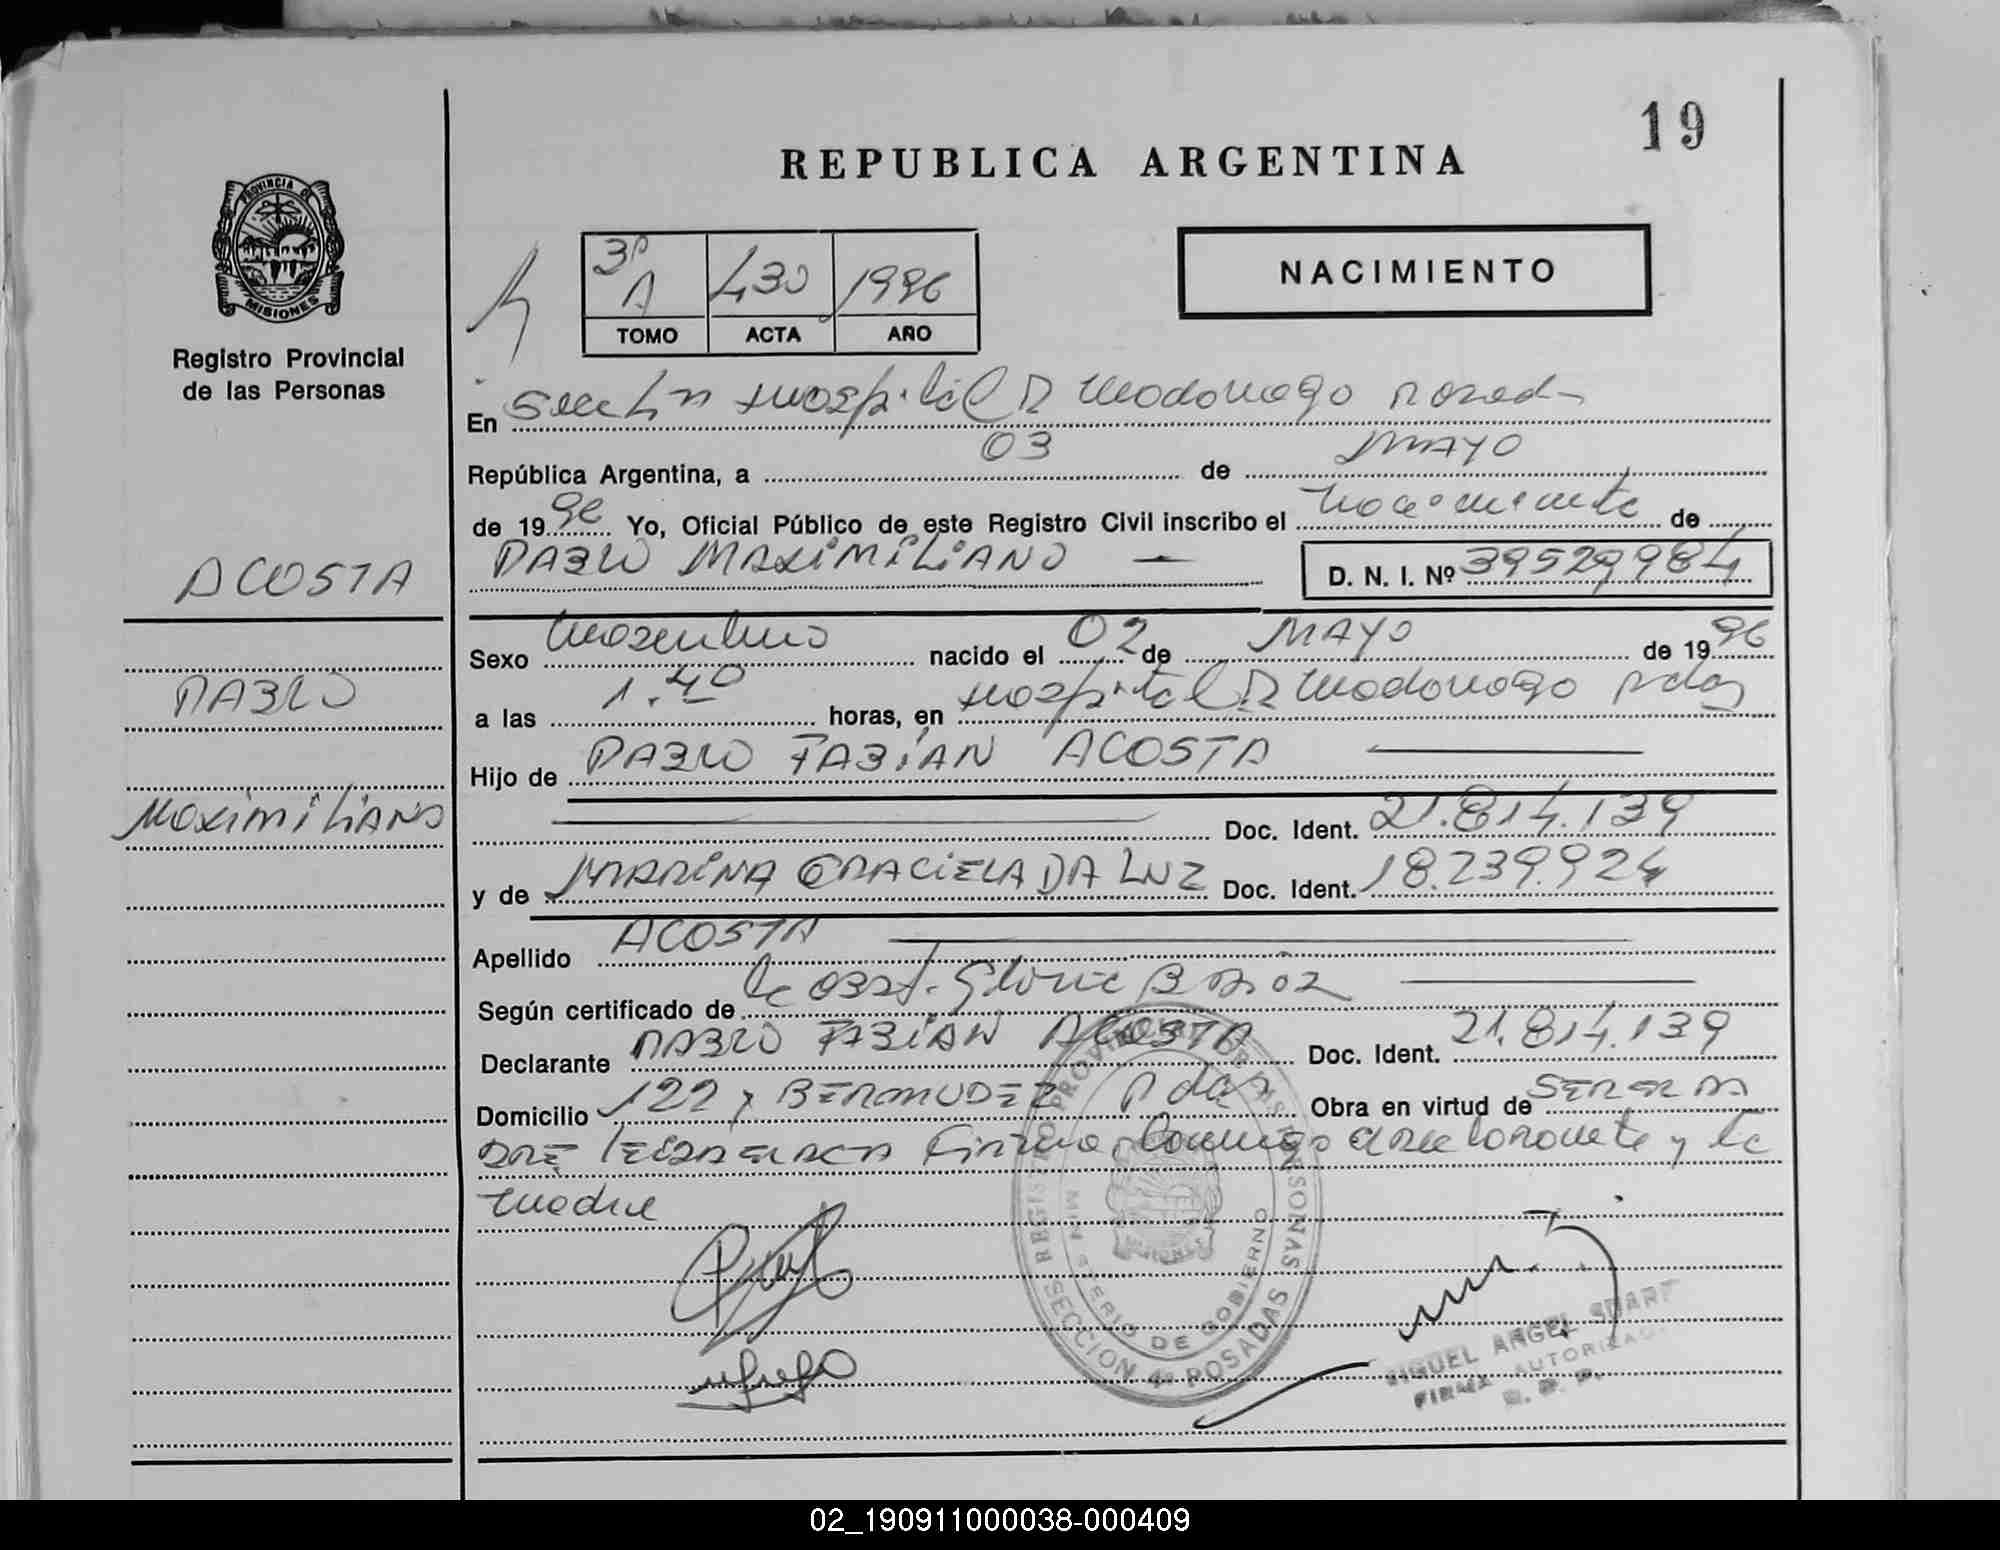 19
REPUBLICA ARGENTINA
PROVINCIA DE
MISIONES
Registro Provincial
de las Personas
3º A 430 1996
TOMO ACTA AÑO
NACIMIENTO
En Hospital R Madariaga Posadas
República Argentina, a 03 de MAYO
de 1996 Yo, Oficial Público de este Registro Civil inscribo el nacimiento de
PABLO MAXIMILIANO — D. N. I. Nº 39529984
ACOSTA
PABLO
MAXIMILIANO
Sexo masculino nacido el 02 de MAYO de 1996
a las 1.40 horas, en Hospital R Madariaga Pdas
Hijo de PABLO FABIAN ACOSTA
Doc. Ident. 21.814.139
y de MARINA GRACIELA DA LUZ Doc. Ident. 18.239.924
Apellido ACOSTA
Según certificado de la obst. Gloria B
Declarante PABLO FABIAN ACOSTA Doc. Ident. 21.814.139
Domicilio 122 y BERMUDEZ Pdas Obra en virtud de SER EL PA
DRE Firma conmigo el declarante y la
madre
REGISTRO PROVINCIAL DE LAS PERSONAS
MINISTERIO DE GOBIERNO
MISIONES
SECCION 4ª POSADAS
MIGUEL ANGEL
FIRMA AUTORIZADA
02_190911000038-000409